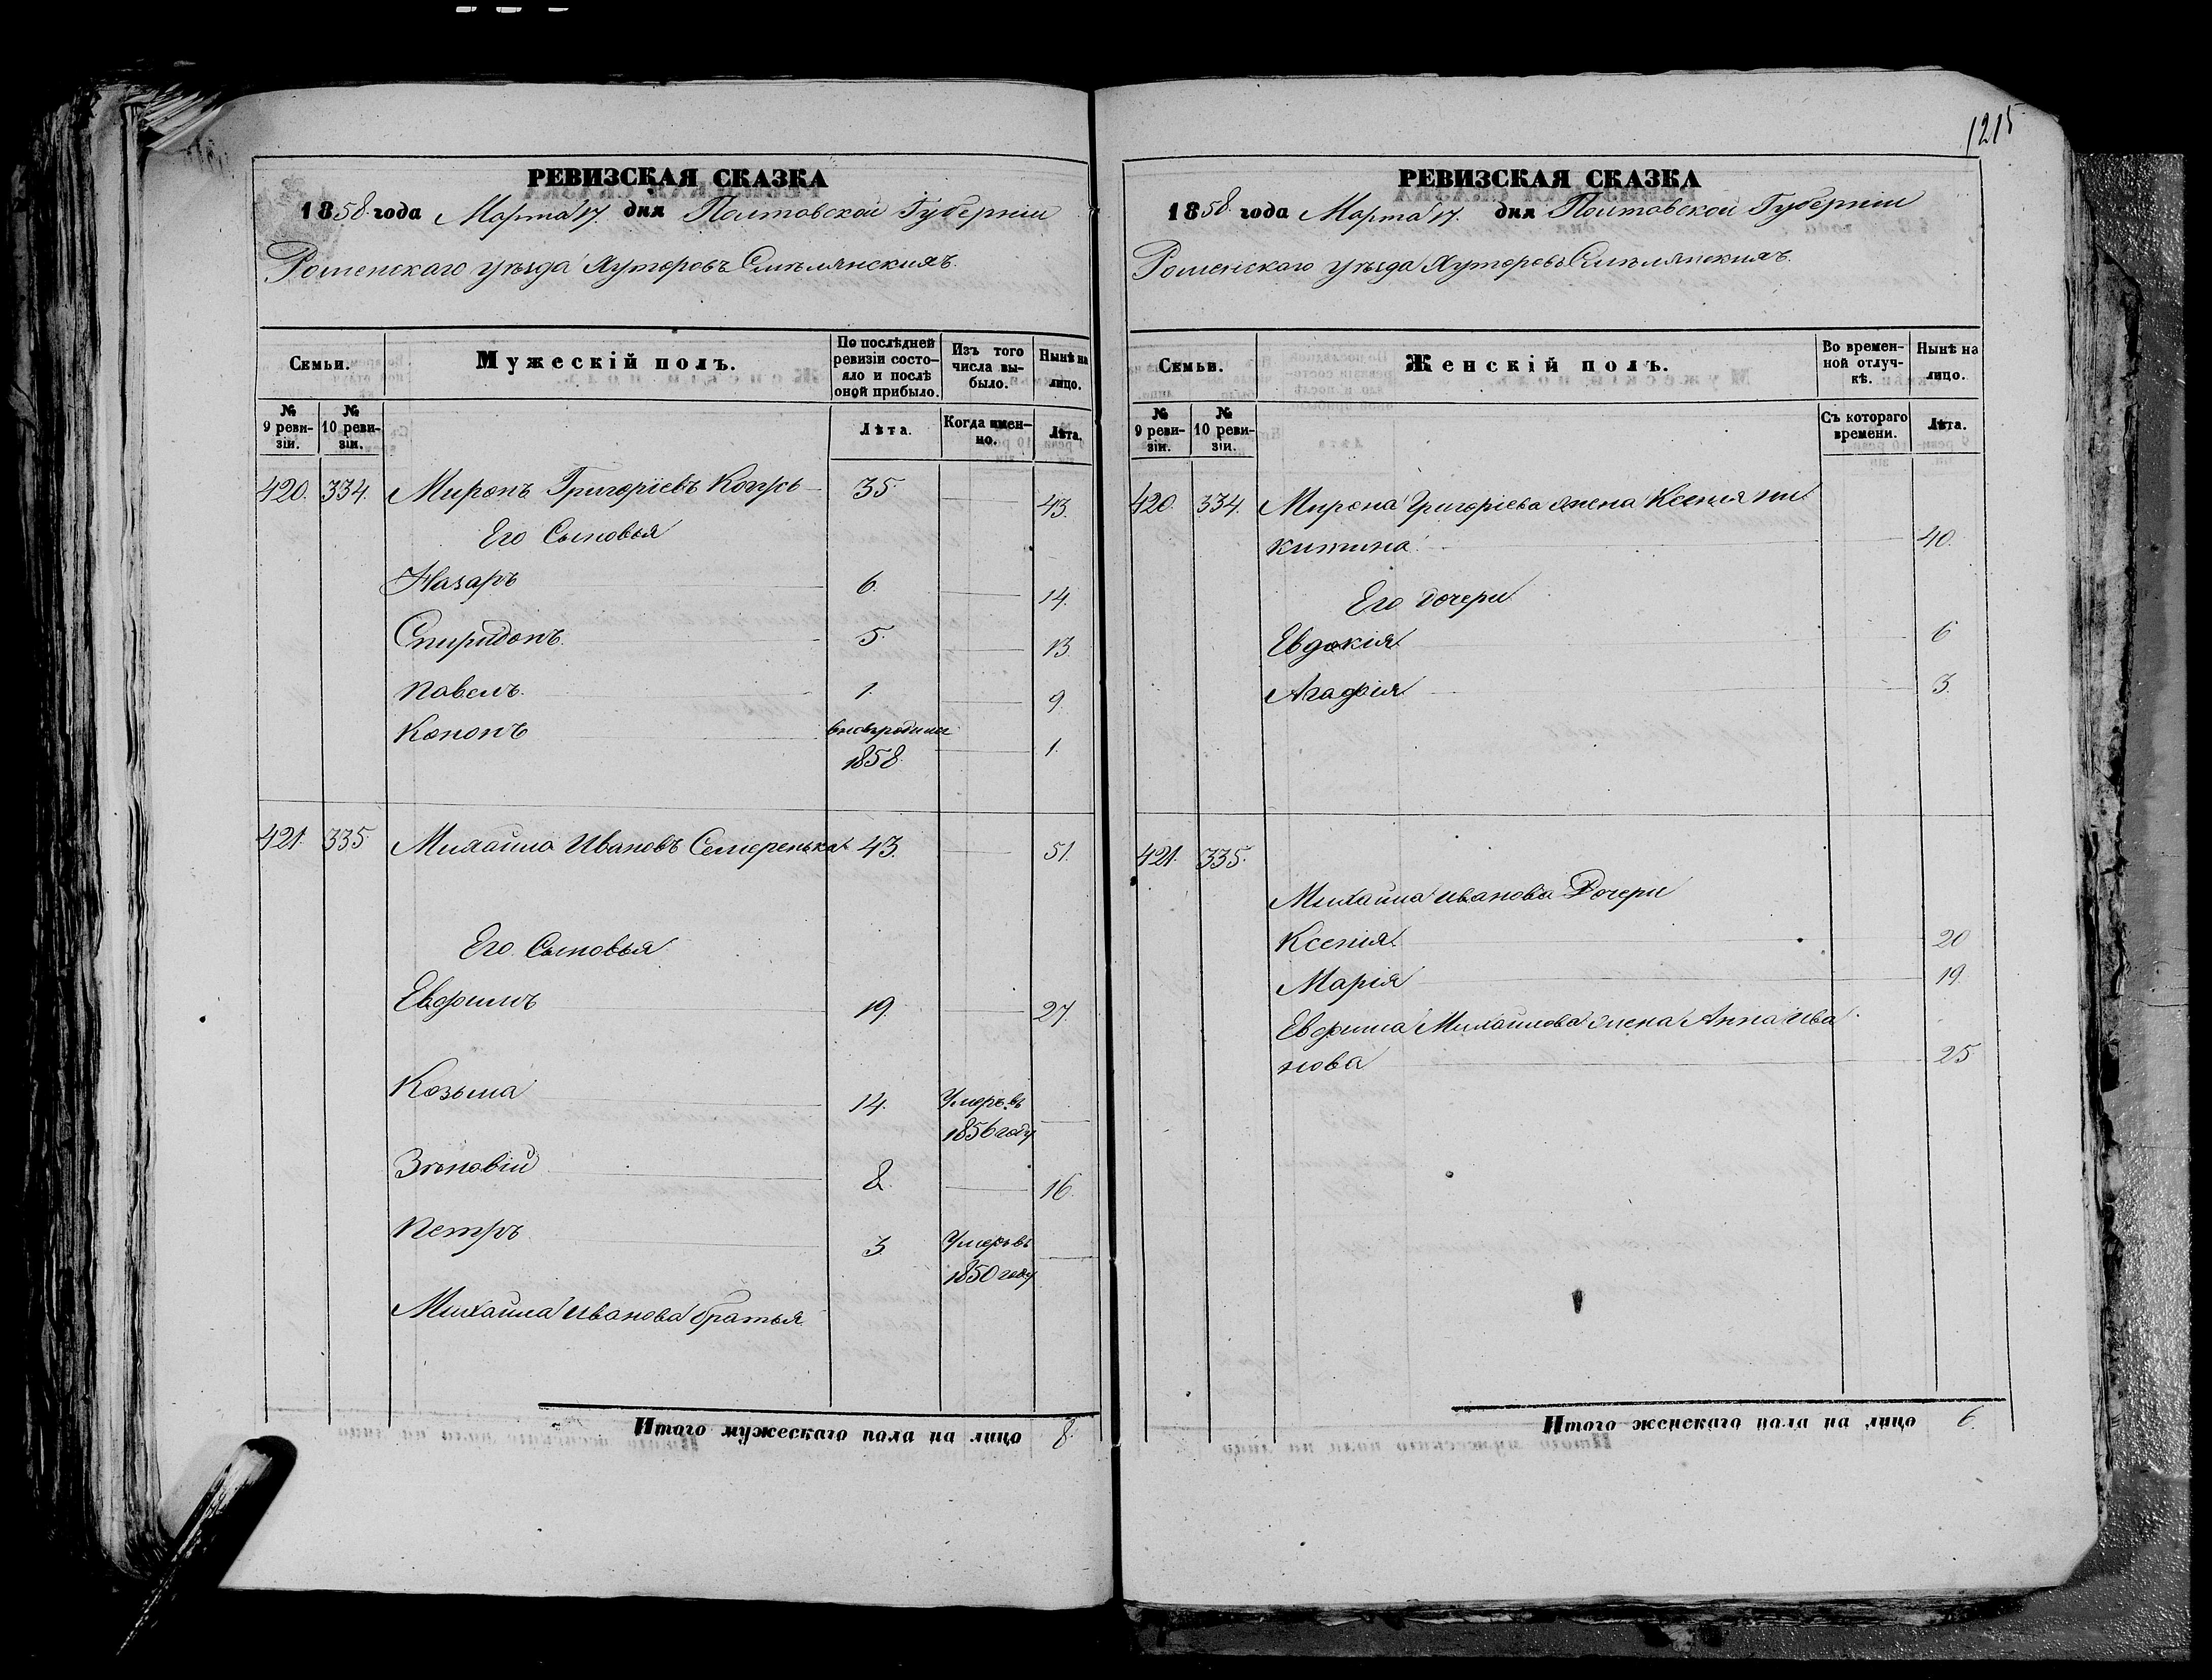 1215
РЕВИЗСКАЯ СКАЗКА
1858 года Марта 17. дня Полтавской Губерніи
Роменскаго уѣзда Хуторовъ Смѣлянскихъ.
Семьи.
Мужескій полъ.
По послѣдней ревизіи состояло и послѣ оной прибыло.
Изъ того числа выбыло.
Нынѣ на лицо.
№ 9 ревизіи.
№ 10 ревизіи.
Лѣта.
Когда именно.
Лѣта.
420. 334. Миронъ Григоріевъ 35 43.
Его Сыновья
Назаръ 6. 14.
Спиридонъ 5. 13
Павелъ. 1. 9
Кононъ 1.
1858.
421. 335. Михайло Ивановъ Семеренька 43. 51.
Его Сыновья
Евфимъ 19. 27.
Козьма 14. Умеръ въ
1856 году
Зѣновій 8. 16.
Петръ 3 Умеръ въ
1850 году
Михайла Иванова братья
Итого мужескаго пола на лицо 8.
РЕВИЗСКАЯ СКАЗКА
1858. года Марта 17. дня Полтавской Губерніи
Роменскаго уѣзда Хуторовъ Смѣлянскихъ.
Семьи.
Женскій полъ.
Во временной отлучкѣ.
Нынѣ на лицо.
№ 9 ревизіи.
№ 10 ревизіи.
Съ котораго времени.
Лѣта.
420. 334. Мирона Григоріева жена Ксенія Ни
китина 40.
Его дочери
Евдокія 6
Агафія 3.
421. 335.
Михайла Иванова Дочери
Ксенія 20
Марія 19.
Евфима Михайлова жена Анна Ива
нова 25
Итого женскаго пола на лицо 6.